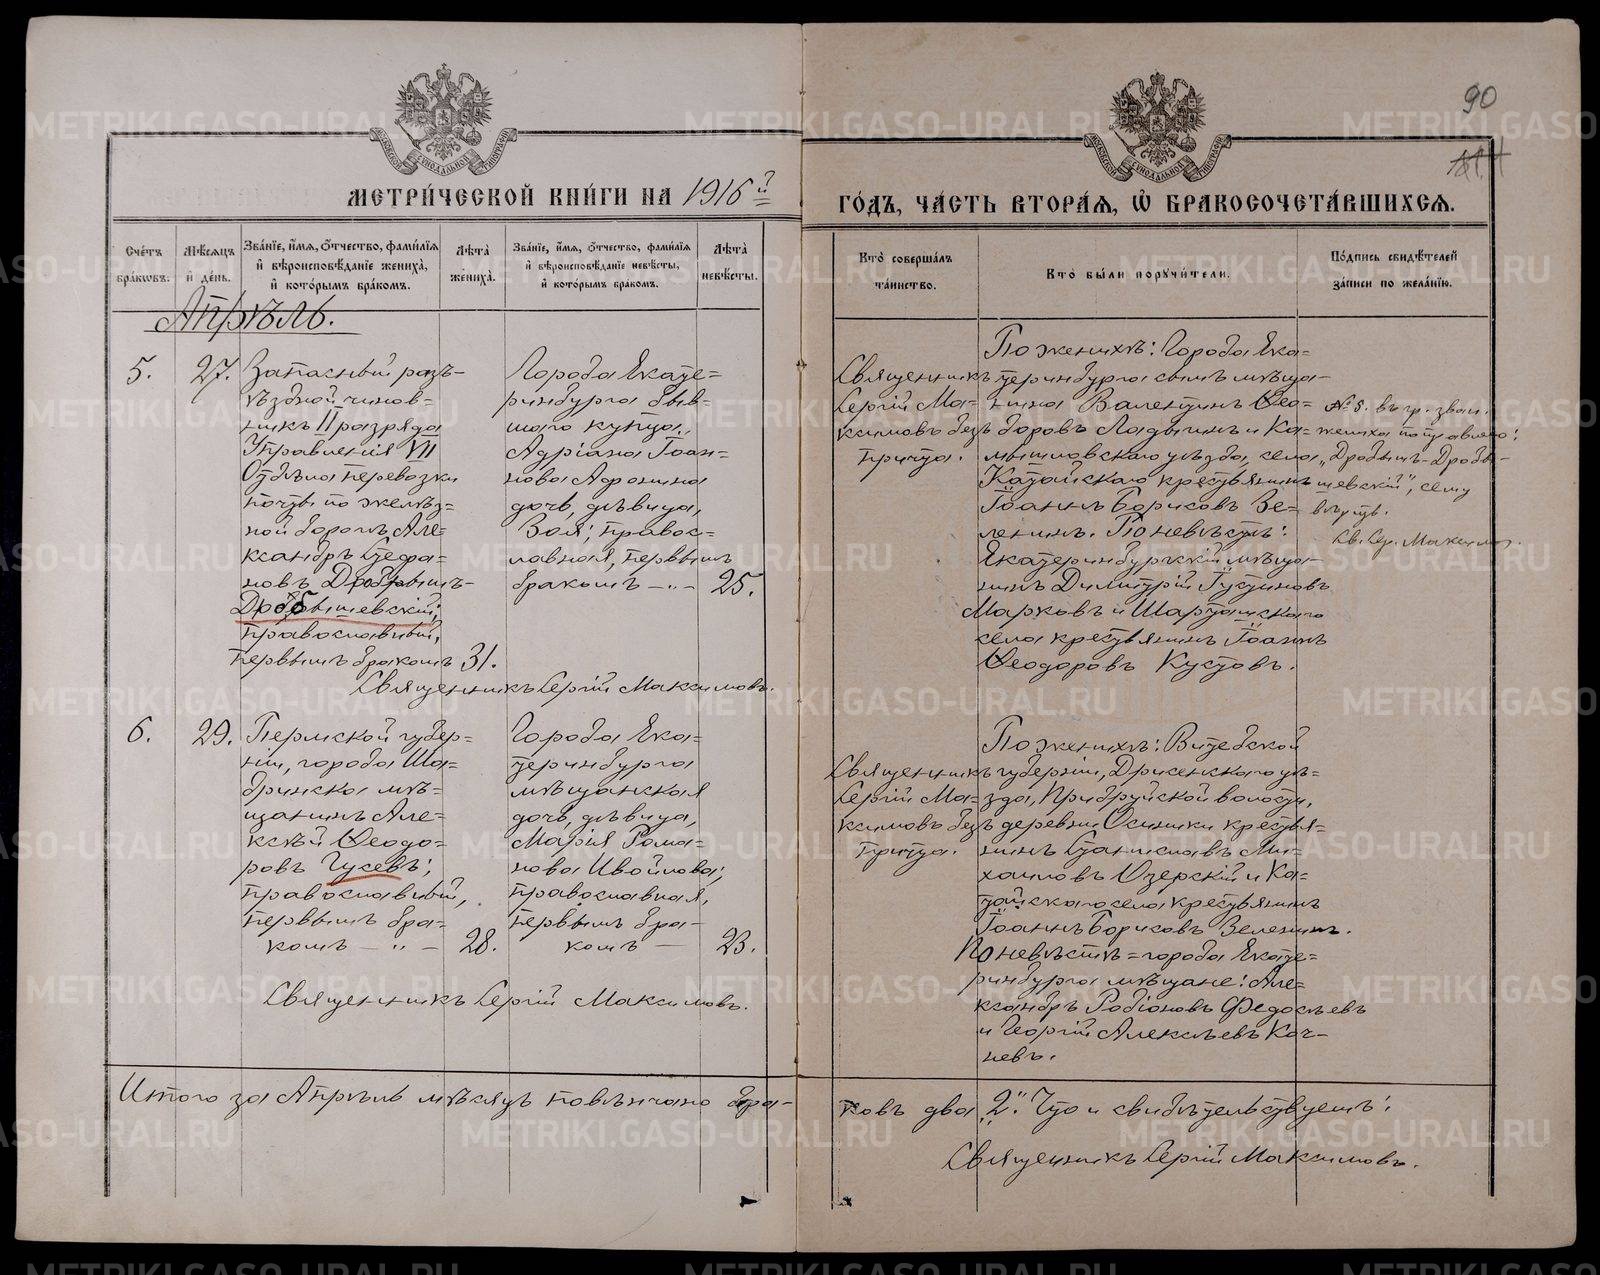 90
МЕТРИ́ЧЕСКОЙ КНИ́ГИ НА 1916й
ГО́ДЪ, ЧА́СТЬ ВТОРА́Я, Ѡ БРАКОСОЧЕТА́ВШИХСЯ.
Сче́тъ бра́ковъ.
Мѣ́сяцъ и́ де́нь.
Зва́нїе, и́мя, о́тчество, фами́лїя и́ вѣроисповѣ́данїе жениха̀, и́ кото́рымъ бра́комъ.
Лѣ́та жениха̀.
Зва́нїе, и́мя, о́тчество, фами́лїя и́ вѣроисповѣ́данїе невѣ́сты, и́ кото́рымъ бра́комъ.
Лѣ́та невѣ́сты.
Кто̀ соверша́лъ та́инство.
Кто̀ бы́ли поручи́тели.
По́дпись свидѣ́телей за́писи по жела́нїю.
Апрѣль.
5.
27.
Запасный разъ-
ѣздной чинов=
никъ II разряда
Управленія VII
Отдѣла перевозки
почты по желѣз-
ной дорогѣ Але-
ксандръ Стефа-
новъ Дробышъ-
Дробышевскій;
православный,
первымъ бракомъ
31.
Города Екате=
ринбурга быв-
шаго купца,
Адріана Іоан-
нова Афонина
дочь, дѣвица,
Зоя; правос-
лавная, первымъ
бракомъ —„—
25.
Священникъ Сергій Максимовъ.
Священникъ
Сергій Ма=
ксимовъ безъ
причта.
По женихѣ: Города Ека=
теринбурга сынъ мѣща-
нина Валентинъ Ѳео-
доровъ Ладыгинъ и Ка=
мышловскаго уѣзда, села
Катайскаго крестьянинъ
Іоаннъ Борисовъ Зе-
ленинъ. По невѣстѣ:
Екатеринбургскій мѣща-
нинъ Димитрій Густиновъ
Марковъ и Шарташскаго
села крестьянинъ Іоаннъ
Ѳеодоровъ Кустовъ.
№ 5. въ гр. зван.
жениха поправлено:
„Дробышъ-Дробы-
шевскій", сему
вѣрить.
Св. Сер. Максимов.
6.
29.
Пермской губер-
ніи, города Ша=
дринска мѣ=
щанинъ Але-
ксѣй Ѳеодо-
ровъ Гусевъ;
православный,
первымъ бра-
комъ —„—
28.
Города Ека-
теринбурга
мѣщанская
дочь, дѣвица,
Марія Рома-
нова Ивойлова;
православная,
первымъ бра-
комъ —
23.
Священникъ Сергій Максимовъ.
Священникъ
Сергій Ма=
ксимовъ безъ
причта.
По женихѣ: Витебской
губерніи, Дрисенскаго уѣ=
зда, Прибруйской волости,
деревни Осиники крестья=
нинъ Станиславъ Ми-
хаиловъ Озерскій и Ка-
тайскаго села крестьянинъ
Іоаннъ Борисовъ Зеленинъ.
По невѣстѣ = города Екате=
ринбурга мѣщане: Але=
ксандръ Родіоновъ Федосѣевъ
и Георгій Алексѣевъ Коч-
невъ.
Итого за Апрѣль мѣсяцъ повѣнчано бра-
ковъ два „2". Что и свидѣтельствуетъ:
Священникъ Сергій Максимовъ.